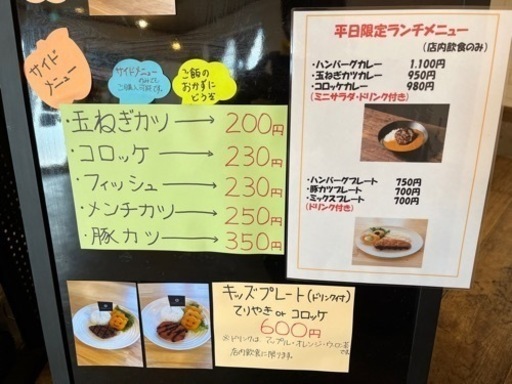 サイド
メニュー
サイドメニュー
のみでも
ご購入可能です。
ご飯の
おかずに
どうぞ
・玉ねぎカツ→200円
・コロッケ→230円
・フィッシュ→230円
・メンチカツ→250円
・豚カツ→350円
平日限定ランチメニュー
(店内飲食のみ)
・ハンバーグカレー 1,100円
・玉ねぎカツカレー 950円
・コロッケカレー 980円
(ミニサラダ・ドリンク付き)
・ハンバーグプレート 750円
・豚カツプレート 700円
・ミックスプレート 700円
(ドリンク付き)
キッズプレート(ドリンク付)
てりやき or コロッケ
600円
※ドリンクは、アップル・オレンジ・ウーロン茶
です。
店内飲食に限ります。